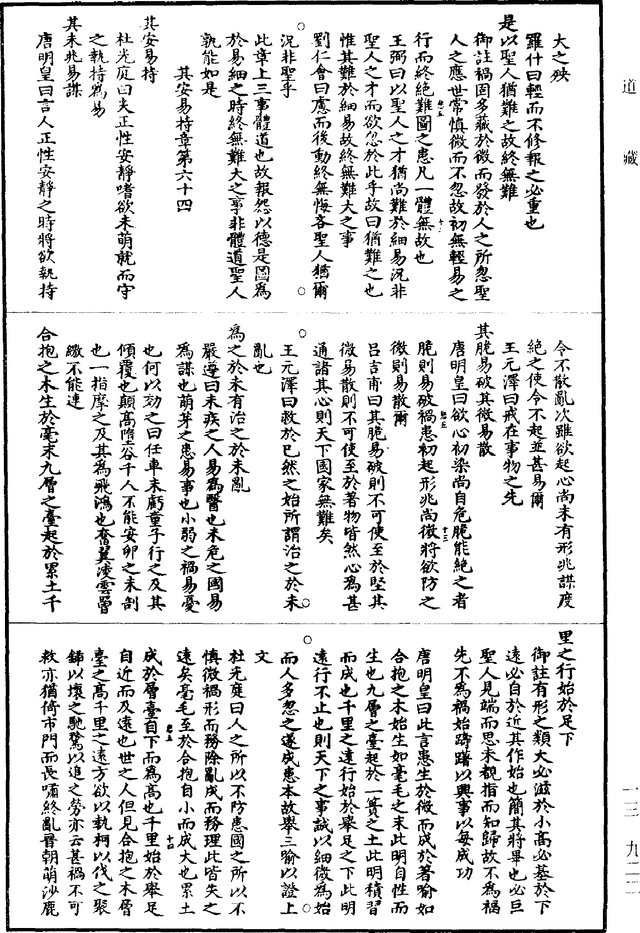 道藏
大之殃
羅什曰輕而不修報之必重也
是以聖人猶難之故終無難
御註禍固多藏於微而發於人之所忽聖
人之應世常慎微而不忽故初無輕易之
行而終絕難圖之患凡一體無故也
王弼曰以聖人之才猶尚難於細易況非
聖人之才而欲忽於此乎故曰猶難之也
惟其難於細易故終無難大之事
劉仁會曰慮而後動終無悔吝聖人猶爾
況非聖乎
此章上三事體道也故報怨以德是圖為
於易細之時終無難大之事非體道聖人
孰能如是
其安易持章第六十四
其安易持
杜光庭曰夫正性安靜嗜欲未萌就而守
之執持為易
其未兆易謀
唐明皇曰言人正性安靜之時將欲執持
令不散亂次雖欲起心尚未有形兆謀度
絕之使令不起並甚易爾
王元澤曰戒在事物之先
其脆易破其微易散
唐明皇曰欲心初染尚自危脆能絕之者
脆則易破禍患初起形兆尚微將欲防之
微則易散爾
呂吉甫曰其脆易破則不可使至於堅其
微易散則不可使至於著物皆然心為甚
通諸其心則天下國家無難矣
王元澤曰救於已然之始所謂治之於未
亂也
為之於未有治之於未亂
嚴遵曰未疾之人易為醫也未危之國易
為謀也萌芽之患易事也小弱之禍易憂
也何以効之曰任車未虧童子行之及其
傾覆也顛高墮谷千人不能安卵之未剖
也一指摩之及其為飛鴻也奮翼淩雲罾
繳不能連
合抱之木生於毫末九層之臺起於累土千
里之行始於足下
御註有形之類大必滋於小高必基於下
遠必自於近其作始也簡其將畢也必巨
聖人見端而思末覩指而知歸故不為福
先不為禍始躊躇以興事以每成功
唐明皇曰此言患生於微而成於著喻如
合抱之木始生如毫毛之末此明自性而
生也九層之臺起於一簣之土此明積習
而成也千里之遠行始於舉足之下此明
遠行不止也則天下之事誠以細微為始
而人多忽之遂成患本故舉三喻以證上
文
杜光庭曰人之所以不防患國之所以不
慎微禍形而務除亂成而務理此皆失之
遠矣毫毛至於合抱自小而成大也累土
成於層臺自下而為高也千里始於舉足
自近而及遠也世之人但見合抱之木層
臺之高千里之遠方欲以執柯以伐之聚
鍤以壞之馳騖以追之勞亦云甚禍不可
救亦猶倚市門而長嘯終亂晉朝萌沙鹿
一三 九二二